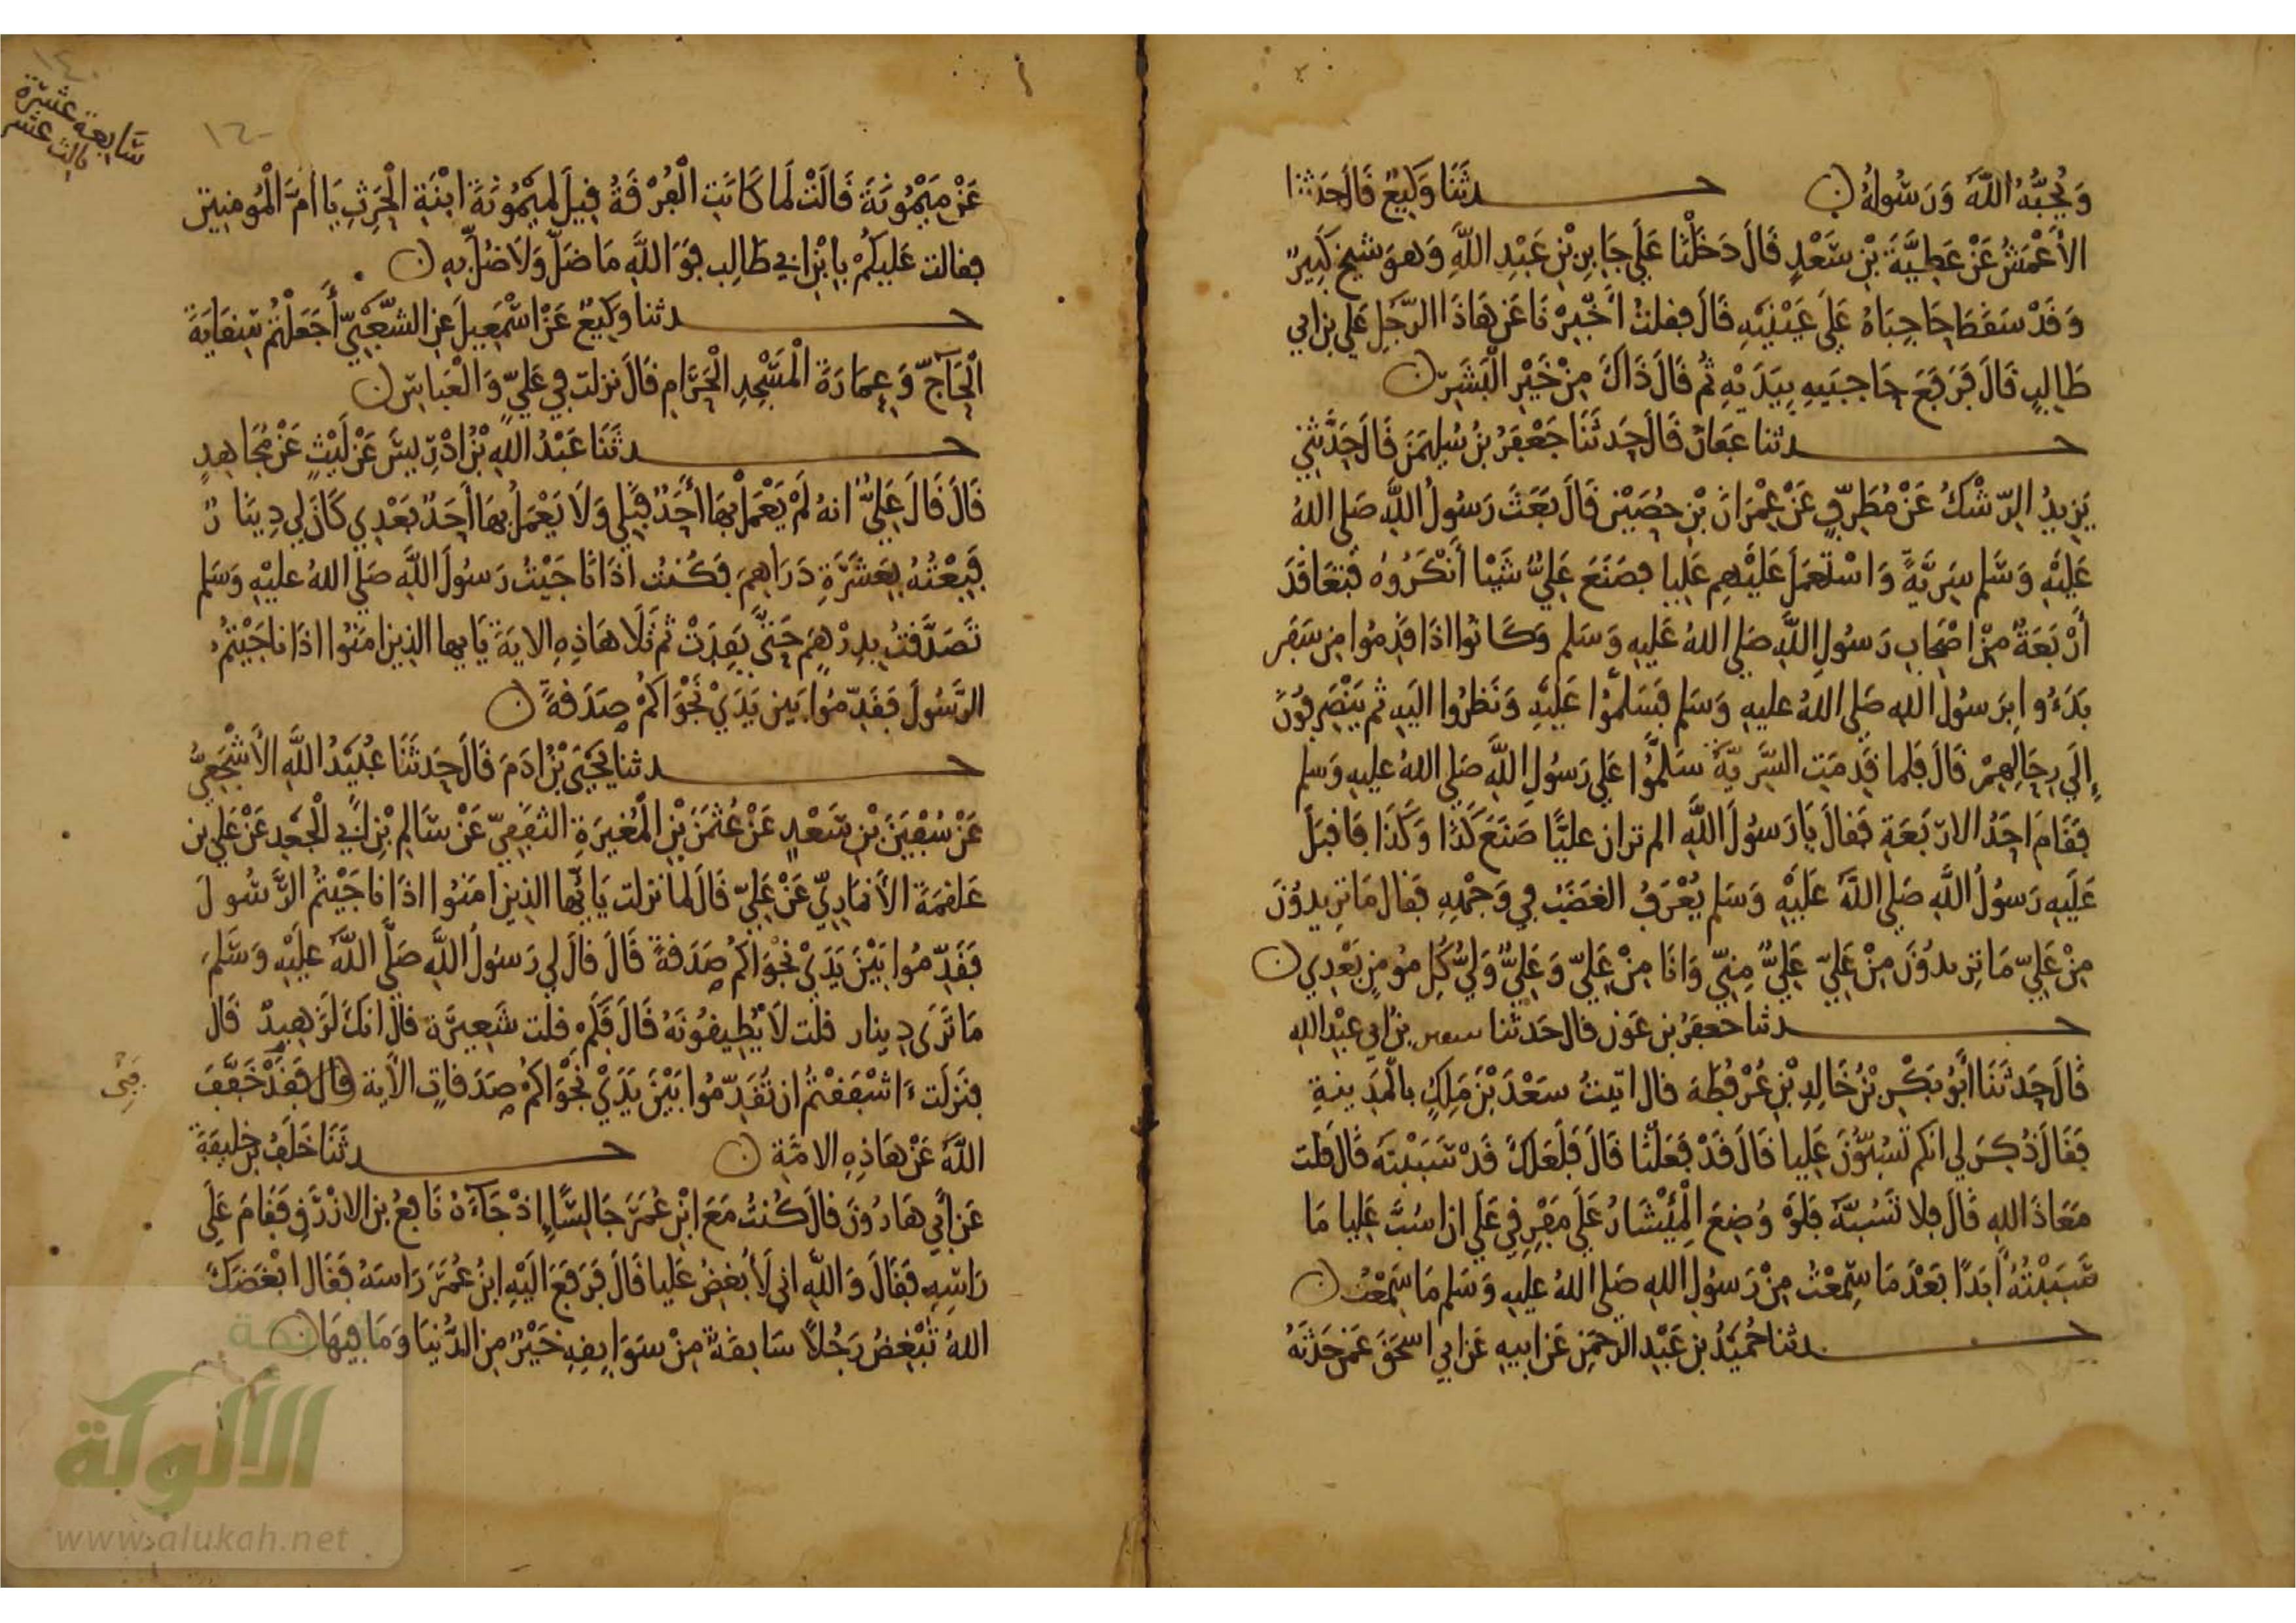 وَيُحِبُّهُ اللَّهُ وَرَسُولُهُ ن حدثَنَا وَكِيعٌ قَالَ حَدثنا
الأَعْمَشُ عَنْ عَطِيَّةَ بْنِ سَعْدٍ قَالَ دَخَلْنَا عَلَى جَابِرِ بْنِ عَبْدِ اللَّهِ وَهوَ شيخ كَبِيرٌ
وَقَدْ سَقَطَ حَاجِبَاهُ عَلَى عَيْنَيْهِ قَالَ فقلتُ أَخْبِرْنَا عَن هَاذَا الرَّجُلِ عَلي بن ابي
طَالِبٍ قَالَ فَرَفَعَ حَاجبَيهِ بِيَدَيْهِ ثُم قَالَ ذَاكَ مِنْ خَيْرِ الْبَشَرِ ن
حدثنا عَفانُ قَالَ حَدثَنَا جَعْفَرُ بنُ سُليمَنَ قَالَ حَدَّثَنِي
يَزِيدُ الرِّشْكُ عَنْ مُطَرِّفٍ عَنْ عِمْرَانَ بْنِ حُصَيْنٍ قَالَ بَعَثَ رَسُولُ اللَّهِ صَلى اللهُ
عَلَيْهِ وَسَلم سَرِيَّةً وَاسْتَعمَلَ عَلَيْهِم عَليا فصَنَعَ عَلِيٌّ شَيْئا أَنْكَرُوهُ فتَعَاقَدَ
أَرْبَعَةٌ مِنْ اصْحَابِ رَسُولِ اللَّهِ صَلى اللهُ عَليهِ وَسَلم وَكَانُوا اذَا قَدِمُوا مِن سَفَر
بَدَءُوا بِرَسُولِ اللهِ صَلى اللهُ عليهِ وَسَلم فَسَلمُوا عَلَيْهِ وَنَظرُوا اليَهِ ثم يَنْصَرِفُونَ
إِلَى رِحَالِهِمْ قَالَ فَلما قَدِمَتِ السَّرِيَّةُ سَلمُوا عَلى رَسُولِ اللَّهِ صَلى اللهُ عليهِ وَسَلم
فَقَامَ احَدُ الارْبَعَةِ فَقالَ يَا رَسُولَ اللَّهِ الم تر ان عليًّا صَنَعَ كَذَا وَكَذَا فَاقبَلَ
عَلَيهِ رَسُولُ اللَّهِ صَلى اللَّهُ عَلَيْهِ وَسَلم يُعْرَفُ الغضَبُ في وَجْهِهِ فقال مَا تريدُونَ
مِنْ عَلِيٍّ مَا تريدُونَ مِنْ عَلِيٍّ عَلِيٌّ مِنِّي وَانَا مِنْ عَلِيٍّ وَعَلِيٌّ وَليُّ كُلِ مُومِنٍ بَعْدِي ن
حدثنا جعفرُ بن عَون قال حَدثنا بن أبي عبْد اللهِ
قَالَ حَدثَنَا أَبُو بَكْرِ بْنُ خَالِدِ بْنِ عُرْفُطَةَ قال اتيتُ سَعْدَ بْنَ مَلِكٍ بالْمَدِينَةِ
فَقَالَ ذُكِرَ لي انكم تَسُبُّونَ عَلِيا قَالَ قَدْ فَعَلْنَا قَالَ فَلَعَلكَ قَدْ سَبَبْتَهُ قَالَ قلت
مَعَاذَ اللهِ قَالَ فلا تَسُبَّهُ فَلَوْ وُضِعَ الْمِئْشَارُ عَلَى مَفْرِقِي عَلَى ان اسُبَّ عَلِيا مَا
سَبَبْتُهُ أَبَدًا بَعْدَ مَا سَمِعْتُ مِنْ رَسُولِ اللهِ صَلى اللهُ عليهِ وَسَلم مَا سَمِعْتُ ن
حدثنا حُمَيْدُ بن عَبْدِ الرَّحمَنِ عَن ابيهِ عَن ابي اسحَقَ عَمن حَدثَهُ
١٤٠
سَابعة عشرة
ثالث عشر
١٤٠
عَنْ مَيْمُونَةَ قَالَتْ لَما كَانَتِ الْفُرْقَةُ قِيلَ لِمَيْمُونَةَ ابْنَةِ الْحَرِثِ يَا امَّ الْمُومنين
فقالت عَلَيكُمْ بِابْنِ ابي طَالِب فوَاللَّهِ مَا ضَلَّ وَلَا ضُلَّ بِهِ ن
حدثنا وَكِيعٌ عَنْ اسْمَعِيلَ عَنِ الشَّعْبِيِّ أَجَعَلْتُمْ سِقَايَةَ
الْحَآجِّ وَعِمَارَةَ الْمَسْجِدِ الْحَرَامِ قَالَ نزلت في عَلِيٍّ وَالْعَباسِ ن
حدثَنَا عَبْدُ اللهِ بْنُ ادْرِيسَ عَنْ لَيْثٍ عَنْ مُجَاهِدٍ
قَالَ قَالَ عَلِيٌّ انهُ لَمْ يَعْمَلْ بِهَا أَحَدٌ قَبْلي وَلَا يَعْمَلُ بِهَا أَحَدٌ بَعْدِي كَانَ لي دِينَارٌ
فَبِعْتُهُ بِعَشَرَةِ دَرَاهِمَ فَكُنتُ اذَا نَاجَيْتُ رَسُولَ اللَّهِ صَلى اللهُ عليْهِ وَسَلم
تَصَدَّقتُ بِدِرْهمٍ حَتَّى نَفِدَتْ ثم تَلَا هَاذِهِ الايَةَ يَايها الذِين امَنُوا اذَا نَاجَيْتُمُ
الرَّسُولَ فَقَدِّمُوا بَين يَدَيْ نَجْوَاكُمْ صَدَقَةً ن
حدثنا يَحْيَى بْنُ ادَمَ قَالَ حَدثَنَا عُبَيْدُ اللَّهِ الأَشْجَعِيُّ
عَنْ سُفْيَنَ بْنِ سَعْدٍ عَنْ عُثْمَنَ بْنِ الْمُغِيرَةِ الثقَفِيِّ عَنْ سَالِمِ بْنِ ابي الْجَعدِ عَنْ عَلي بن
عَلقَمَةَ الأَنمَارِيِّ عَنْ عَلِيٍّ قَالَ لما نزلت يَايُّها الذِين امَنُوا اذَا نَاجَيْتُمُ الرَّسُولَ
فَقَدِّمُوا بَيْنَ يَدَيْ نَجْوَاكُم صَدَقةً قَالَ قالَ لي رَسُولُ اللَّهِ صَلَّى اللَّهُ عَلَيْهِ وَسَلم
مَا تَرَى دِينار قلت لَا يُطِيقُونَهُ قَالَ فَكَمْ قلت شَعِيرَة قال انكَ لَزَهِيدٌ قَالَ
فنَزَلَت ءَاشْفَقْتُمْ ان تُقَدِّمُوا بَيْنَ يَدَيْ نَجْوَاكُمْ صَدَقاتٍ الأَيَة قال فقَدْ خَفَّفَ
اللَّهُ عَنْ هَاذِهِ الامَّةِ ن حدثَنَا خَلَفُ بن خليفَةَ
عَن أَبي هَارُونَ قالَ كُنتُ مَعَ ابْنِ عُمَرَ جَالِسًا اذْ جَآءَهُ نَافِعُ بن الازْرَقِ فَقَامَ عَلَى
رَاسِهِ فَقَالَ وَاللَّهِ اني لَأُبْغِضُ عَلِيا قَالَ فَرَفَعَ الَيْهِ ابنُ عُمَرَ رَاسَهُ فَقَال ابْغَضَكَ
اللهُ تُبْغِضُ رَجُلًا سَابِقَةٌ مِنْ سَوَابِقِهِ خَيْرٌ مِن الدُّنْيَا وَمَا فِيهَا ن
الألوكة
www.alukah.net